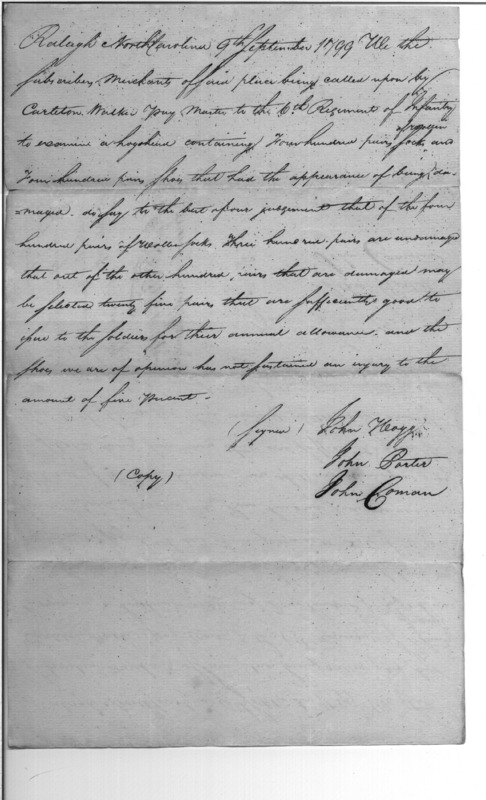 Raleigh North Carolina 9th September 1799 We the
subscribers Merchants of said place being called upon by
Carleton Walker Pay Master to the 6th Regiment of Infantry
to examine a hogshead containing Four hundred pairs woolen socks and
Four hundred pairs shoes that had the appearance of being da-
-maged. do say to the best of our judgement that of the four
hundred pairs of Woolen socks. Three hundred pairs are undamaged
that out of the other hundred, pairs that are damaged may
be selected twenty five pairs that are sufficiently good to
issue to the soldiers for their annual allowance. and the
shoes we are of opinion has not sustained an injury to the
amount of five Percent.-
(Signed) John Hogg
John Porter
(Copy)
John Coman